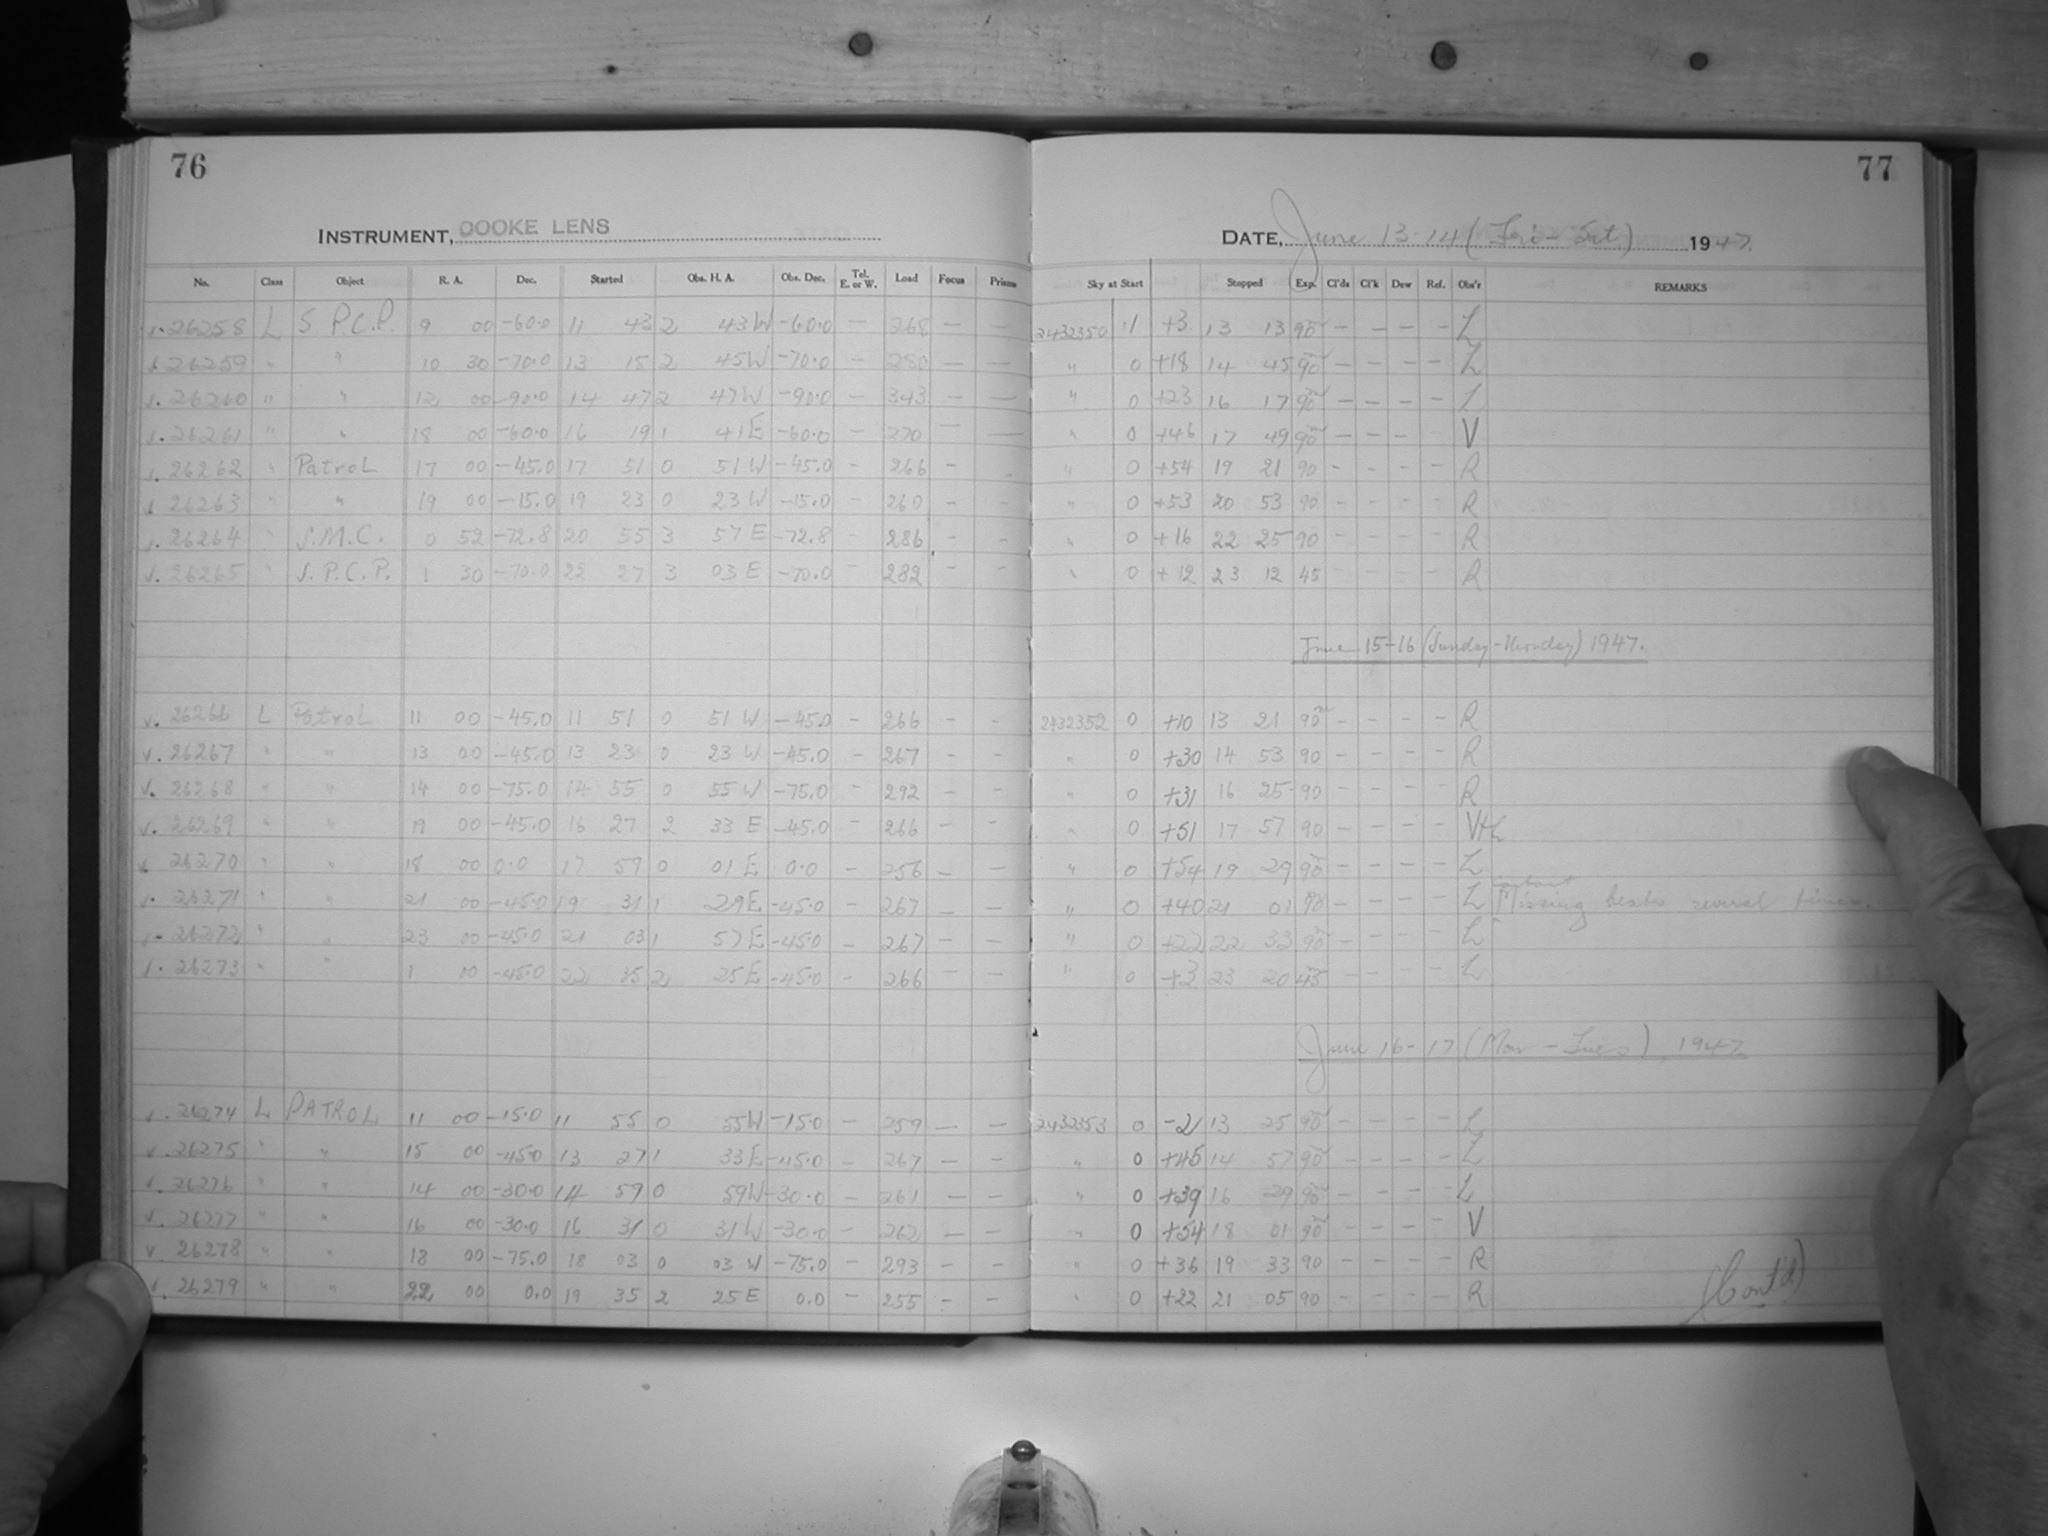 76
77
INSTRUMENT, COOKE LENS
DATE, June 13-14 (Fri - Sat) 1947.
No. Class Object R. A. Dec. Started Obs. H. A. Obs. Dec. Tel. E. or W. Load Focus Prisms Sky at Start Stopped Exp. Cl'ds Cl'k Dew Ref. Obs'r REMARKS
26258 L S P.C.P. 9 00 -60.0 11 43 2 43 W -60.0 - 268 - - 2432350 1 +3 13 13 90 - - - - L
26259 " " 10 30 -70.0 13 15 2 45 W -70.0 - 280 - - " 0 +18 14 45 90 - - - - L
26260 " " 12 00 -90.0 14 47 2 47 W -90.0 - 343 - - " 0 +23 16 17 90 - - - - L
26261 " " 18 00 -60.0 16 19 1 41 E -60.0 - 270 - - " 0 +46 17 49 90 - - - - V
26262 " Patrol 17 00 -45.0 17 51 0 51 W -45.0 - 266 - - " 0 +54 19 21 90 - - - - R
26263 " " 19 00 -15.0 19 23 0 23 W -15.0 - 260 - - " 0 +53 20 53 90 - - - - R
26264 " S.M.C. 0 52 -72.8 20 55 3 57 E -72.8 - 286 - - " 0 +16 22 25 90 - - - - R
26265 " S.P.C.P. 1 30 -70.0 22 27 3 03 E -70.0 - 282 - - " 0 +12 23 12 45 - - - - R
June 15-16 (Sunday-Monday) 1947.
v. 26266 L Patrol 11 00 -45.0 11 51 0 51 W -45.0 - 266 - - 2432352 0 +10 13 21 90 - - - - R
v. 26267 " " 13 00 -45.0 13 23 0 23 W -45.0 - 267 - - " 0 +30 14 53 90 - - - - R
v. 26268 " " 14 00 -75.0 14 55 0 55 W -75.0 - 292 - - " 0 +31 16 25 90 - - - - R
v. 26269 " " 19 00 -45.0 16 27 2 33 E -45.0 - 266 - - " 0 +51 17 57 90 - - - - V+L
26270 " " 18 00 0.0 17 59 0 01 E 0.0 - 256 - - " 0 +54 19 29 90 - - - - L
26271 " " 21 00 -45.0 19 31 1 29 E -45.0 - 267 - - " 0 +40 21 01 90 - - - - L Missing beats several times.
26272 " " 23 00 -45.0 21 03 1 57 E -45.0 - 267 - - " 0 +22 22 33 90 - - - - L
26273 " " 1 00 -45.0 22 35 2 25 E -45.0 - 266 - - " 0 +3 23 20 45 - - - - L
June 16-17 (Mon - Tues), 1947
v. 26274 L PATROL 11 00 -15.0 11 55 0 55 W -15.0 - 259 - - 2432353 0 -2 13 25 90 - - - - L
v. 26275 " " 15 00 -45.0 13 27 1 33 E -45.0 - 267 - - " 0 +45 14 57 90 - - - - L
v. 26276 " " 14 00 -30.0 14 59 0 59 W -30.0 - 261 - - " 0 +39 16 29 90 - - - - L
v. 26277 " " 16 00 -30.0 16 31 0 31 W -30.0 - 262 - - " 0 +54 18 01 90 - - - - V
v 26278 " " 18 00 -75.0 18 03 0 03 W -75.0 - 293 - - " 0 +36 19 33 90 - - - - R
v. 26279 " " 22 00 0.0 19 35 2 25 E 0.0 - 255 - - " 0 +22 21 05 90 - - - - R
(Cont'd)